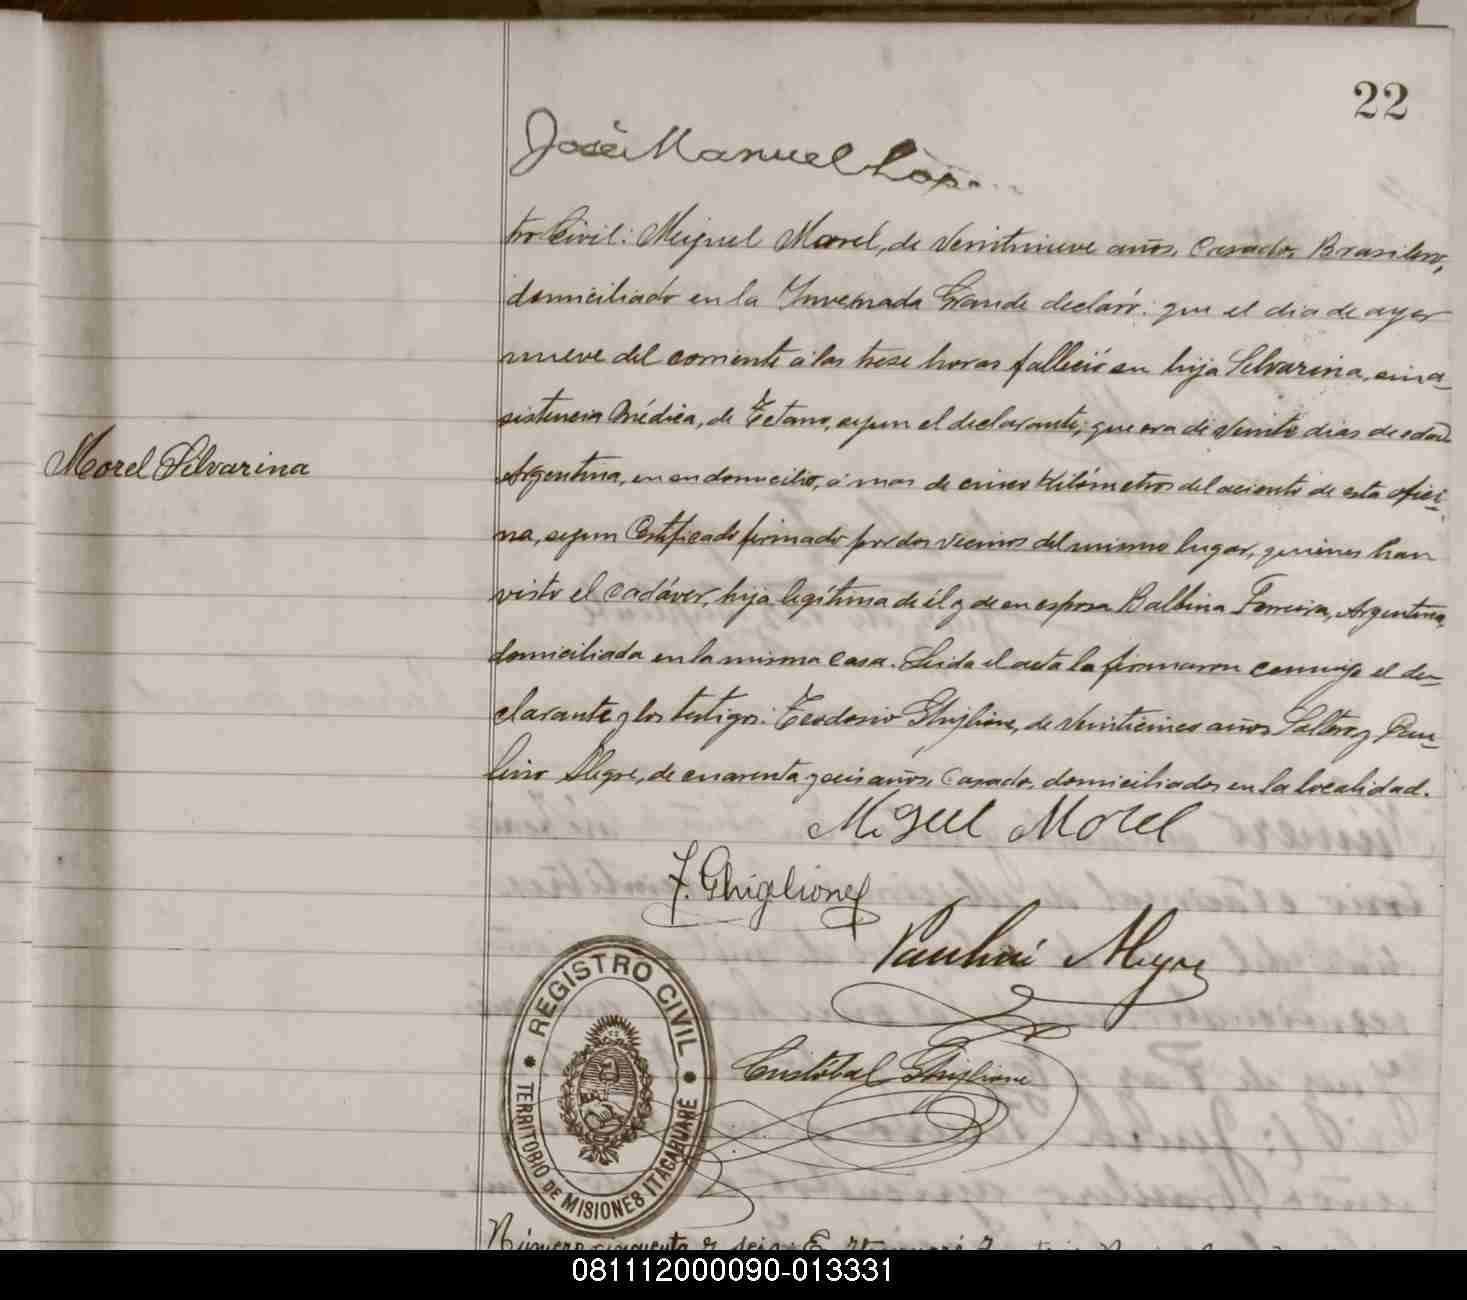 22
José Manuel Lop
tro Civil: Miguel Morel, de Veintinueve años, Casado, Brasilero,
domiciliado en la Invernada Grande declaró: que el dia de ayer
nueve del corriente á las trese horas falleció su hija Selvarina, sin a-
sistencia Médica, de Tetano, segun el declarante; que era de veinte dias de edad
Morel Silvarina
Argentina, en su domicilio, á mas de cinco Kilómetros del asiento de esta ofici-
na, segun Certificado firmado por dos vecinos del mismo lugar, quienes han
visto el cadáver, hija legítima de él y de su esposa Balbina Ferreira, Argentina,
domiciliada en la misma casa. Leida el acta la firmaron conmigo el de-
clarante y los testigos: Teodosio Ghiglione, de veinticinco años Soltero y Pau-
lino Alegre, de cuarenta y seis años, Casado, domiciliados en la localidad.
Miguel Morel
T. Ghiglione
Paulino Alegre
REGISTRO CIVIL
Cristóbal Ghiglione
TERRITORIO DE MISIONES ITACARUARÉ
Número cincuenta y seis: E
081112000090-013331